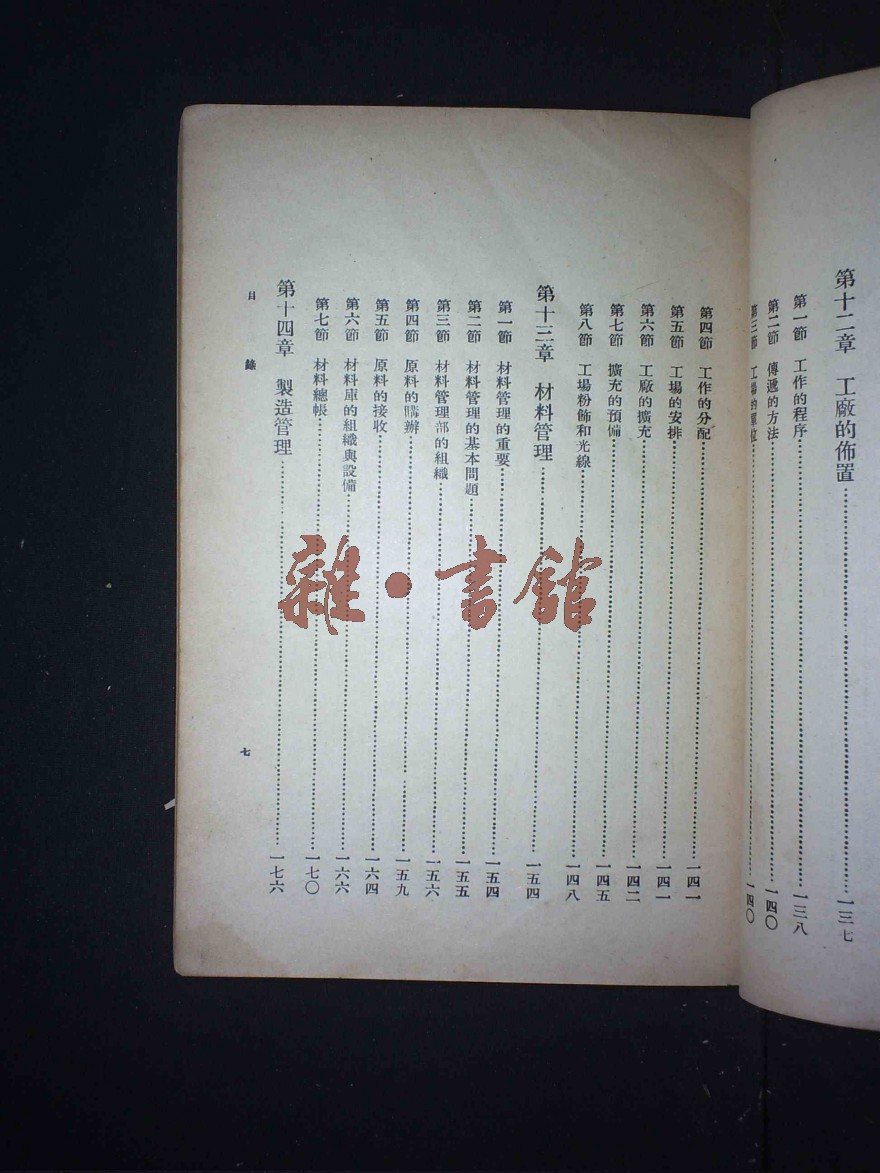 第十二章　工廠的佈置……一三七
第一節　工作的程序……一三八
第二節　傳遞的方法……一四〇
第三節　工場的單位……一四〇
第四節　工作的分配……一四一
第五節　工場的安排……一四一
第六節　工廠的擴充……一四二
第七節　擴充的預備……一四五
第八節　工場粉飾和光線……一四八
第十三章　材料管理……一五四
第一節　材料管理的重要……一五四
第二節　材料管理的基本問題……一五五
第三節　材料管理部的組織……一五六
第四節　原料的購辦……一五九
第五節　原料的接收……一六四
第六節　材料庫的組織與設備……一六六
第七節　材料總帳……一七〇
第十四章　製造管理……一七六
目錄
七
雜·書館